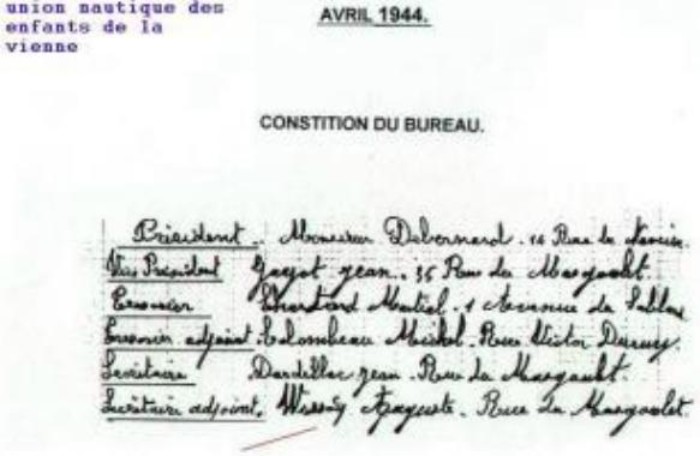 union nautique des
enfants de la
vienne
AVRIL 1944.
CONSTITION DU BUREAU.
Président. Monsieur Debernard. 14 Rue de
Vice Président Guyot jean. 35 Rue du Masgoulet.
Trésorier 1 Avenue du Sablar
Trésorier adjoint. Colombeau Michel. Rue Victor Duruy.
Secrétaire Dardillac jean. Rue du Masgoulet.
Secrétaire adjoint. Auguste. Rue du Masgoulet.